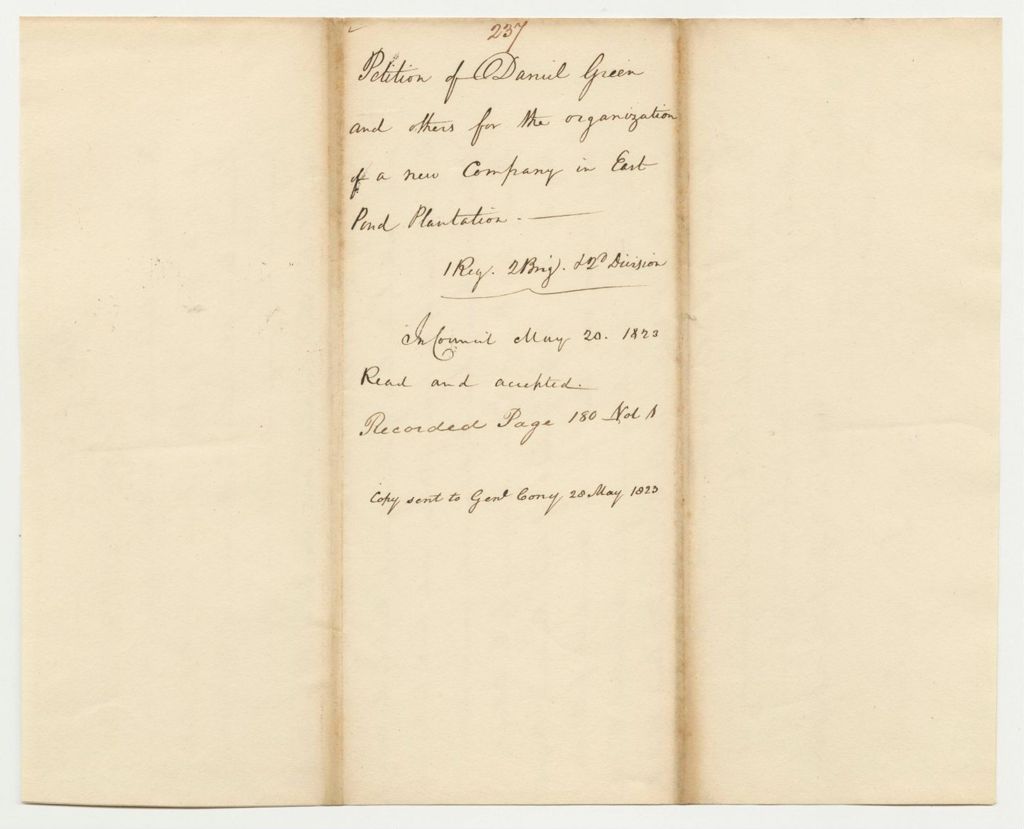 237
Petition of Daniel Green
and others for the organization
of a new Company in East
Pond Plantation.
1 Reg. 2 Brig. & 2d Division
In Council May 20. 1823
Read and accepted.
Recorded Page 180 Vol 1
Copy sent to Genl Cony 28 May 1823